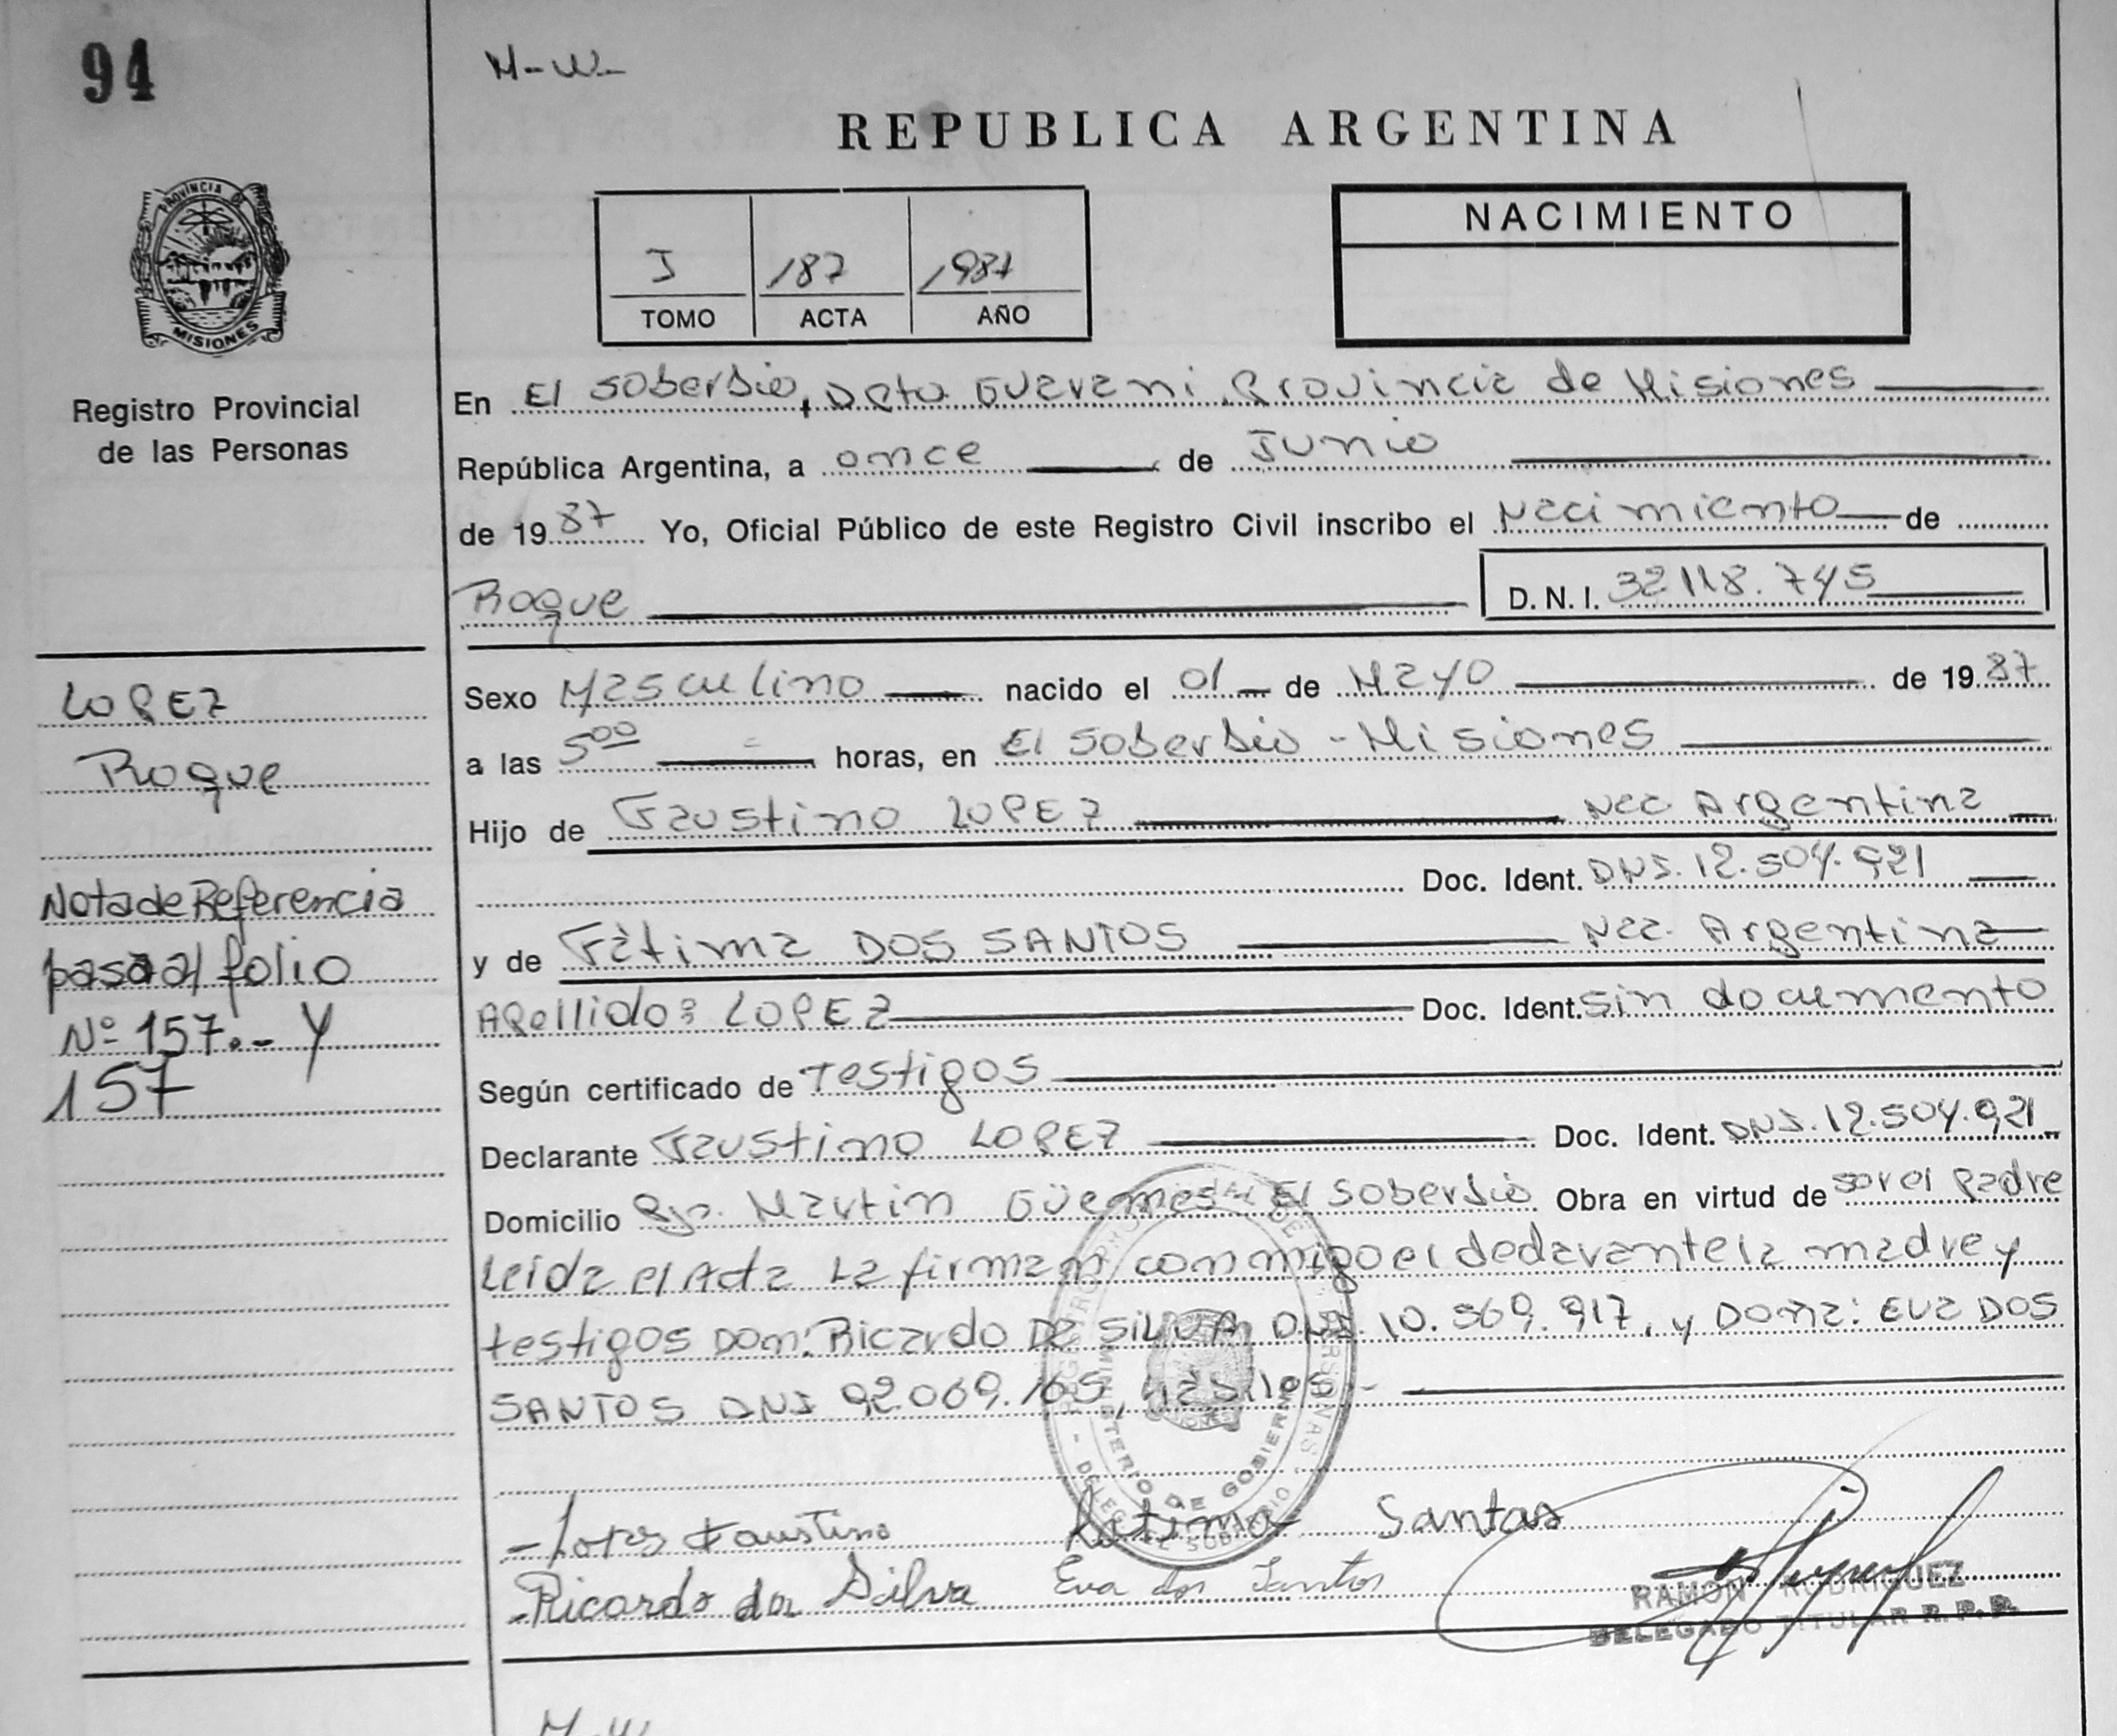 94
M-W-
REPUBLICA ARGENTINA
PROVINCIA DE
MISIONES
Registro Provincial
de las Personas
I 187 1987
TOMO ACTA AÑO
NACIMIENTO
En El Soberbio, Dpto Guarani, Provincia de Misiones
República Argentina, a once de Junio
de 1987 Yo, Oficial Público de este Registro Civil inscribo el Nacimiento de
Roque D.N.I. 32118.745
LOPEZ
Roque
Nota de Referencia
pasa al folio
Nº 157.- y
157
Sexo Masculino nacido el 01 de Mayo de 1987
a las 5⁰⁰ horas, en El Soberbio - Misiones
Hijo de Faustino LOPEZ Nac. Argentina
Doc. Ident. DNI. 12.504.921
y de Fátima DOS SANTOS Nac. Argentina
Apellido: LOPEZ Doc. Ident. sin documento
Según certificado de Testigos
Declarante Faustino LOPEZ Doc. Ident. DNI. 12.504.921
Domicilio Pje. Martin Güemes - El Soberbio Obra en virtud de ser el padre
Leida el Acta La firman conmigo el declarante la madre y
testigos Don: Ricardo DA SILVA DNI. 10.569.917, y Doña: Eva DOS
SANTOS DNI 92.069.165, hábiles.-
MINISTERIO DE GOBIERNO
- Lopes Faustino Fatima Santos
- Ricardo da Silva Eva dos Santos
RAMON RODRIGUEZ
DELEGADO TITULAR R.P.P.
M-W